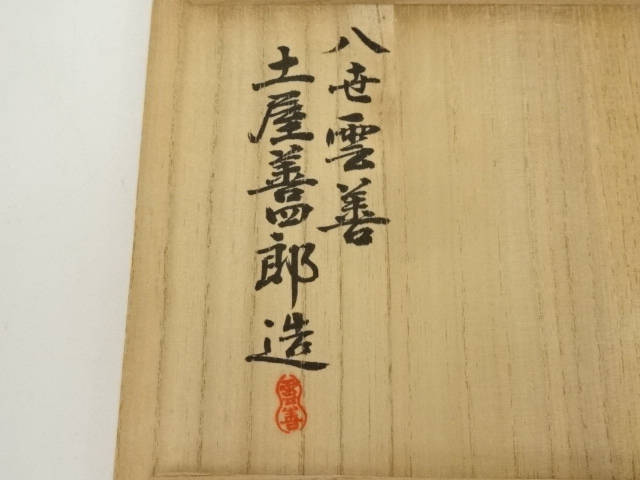 八世雲善
土屋善四郎造
雲善